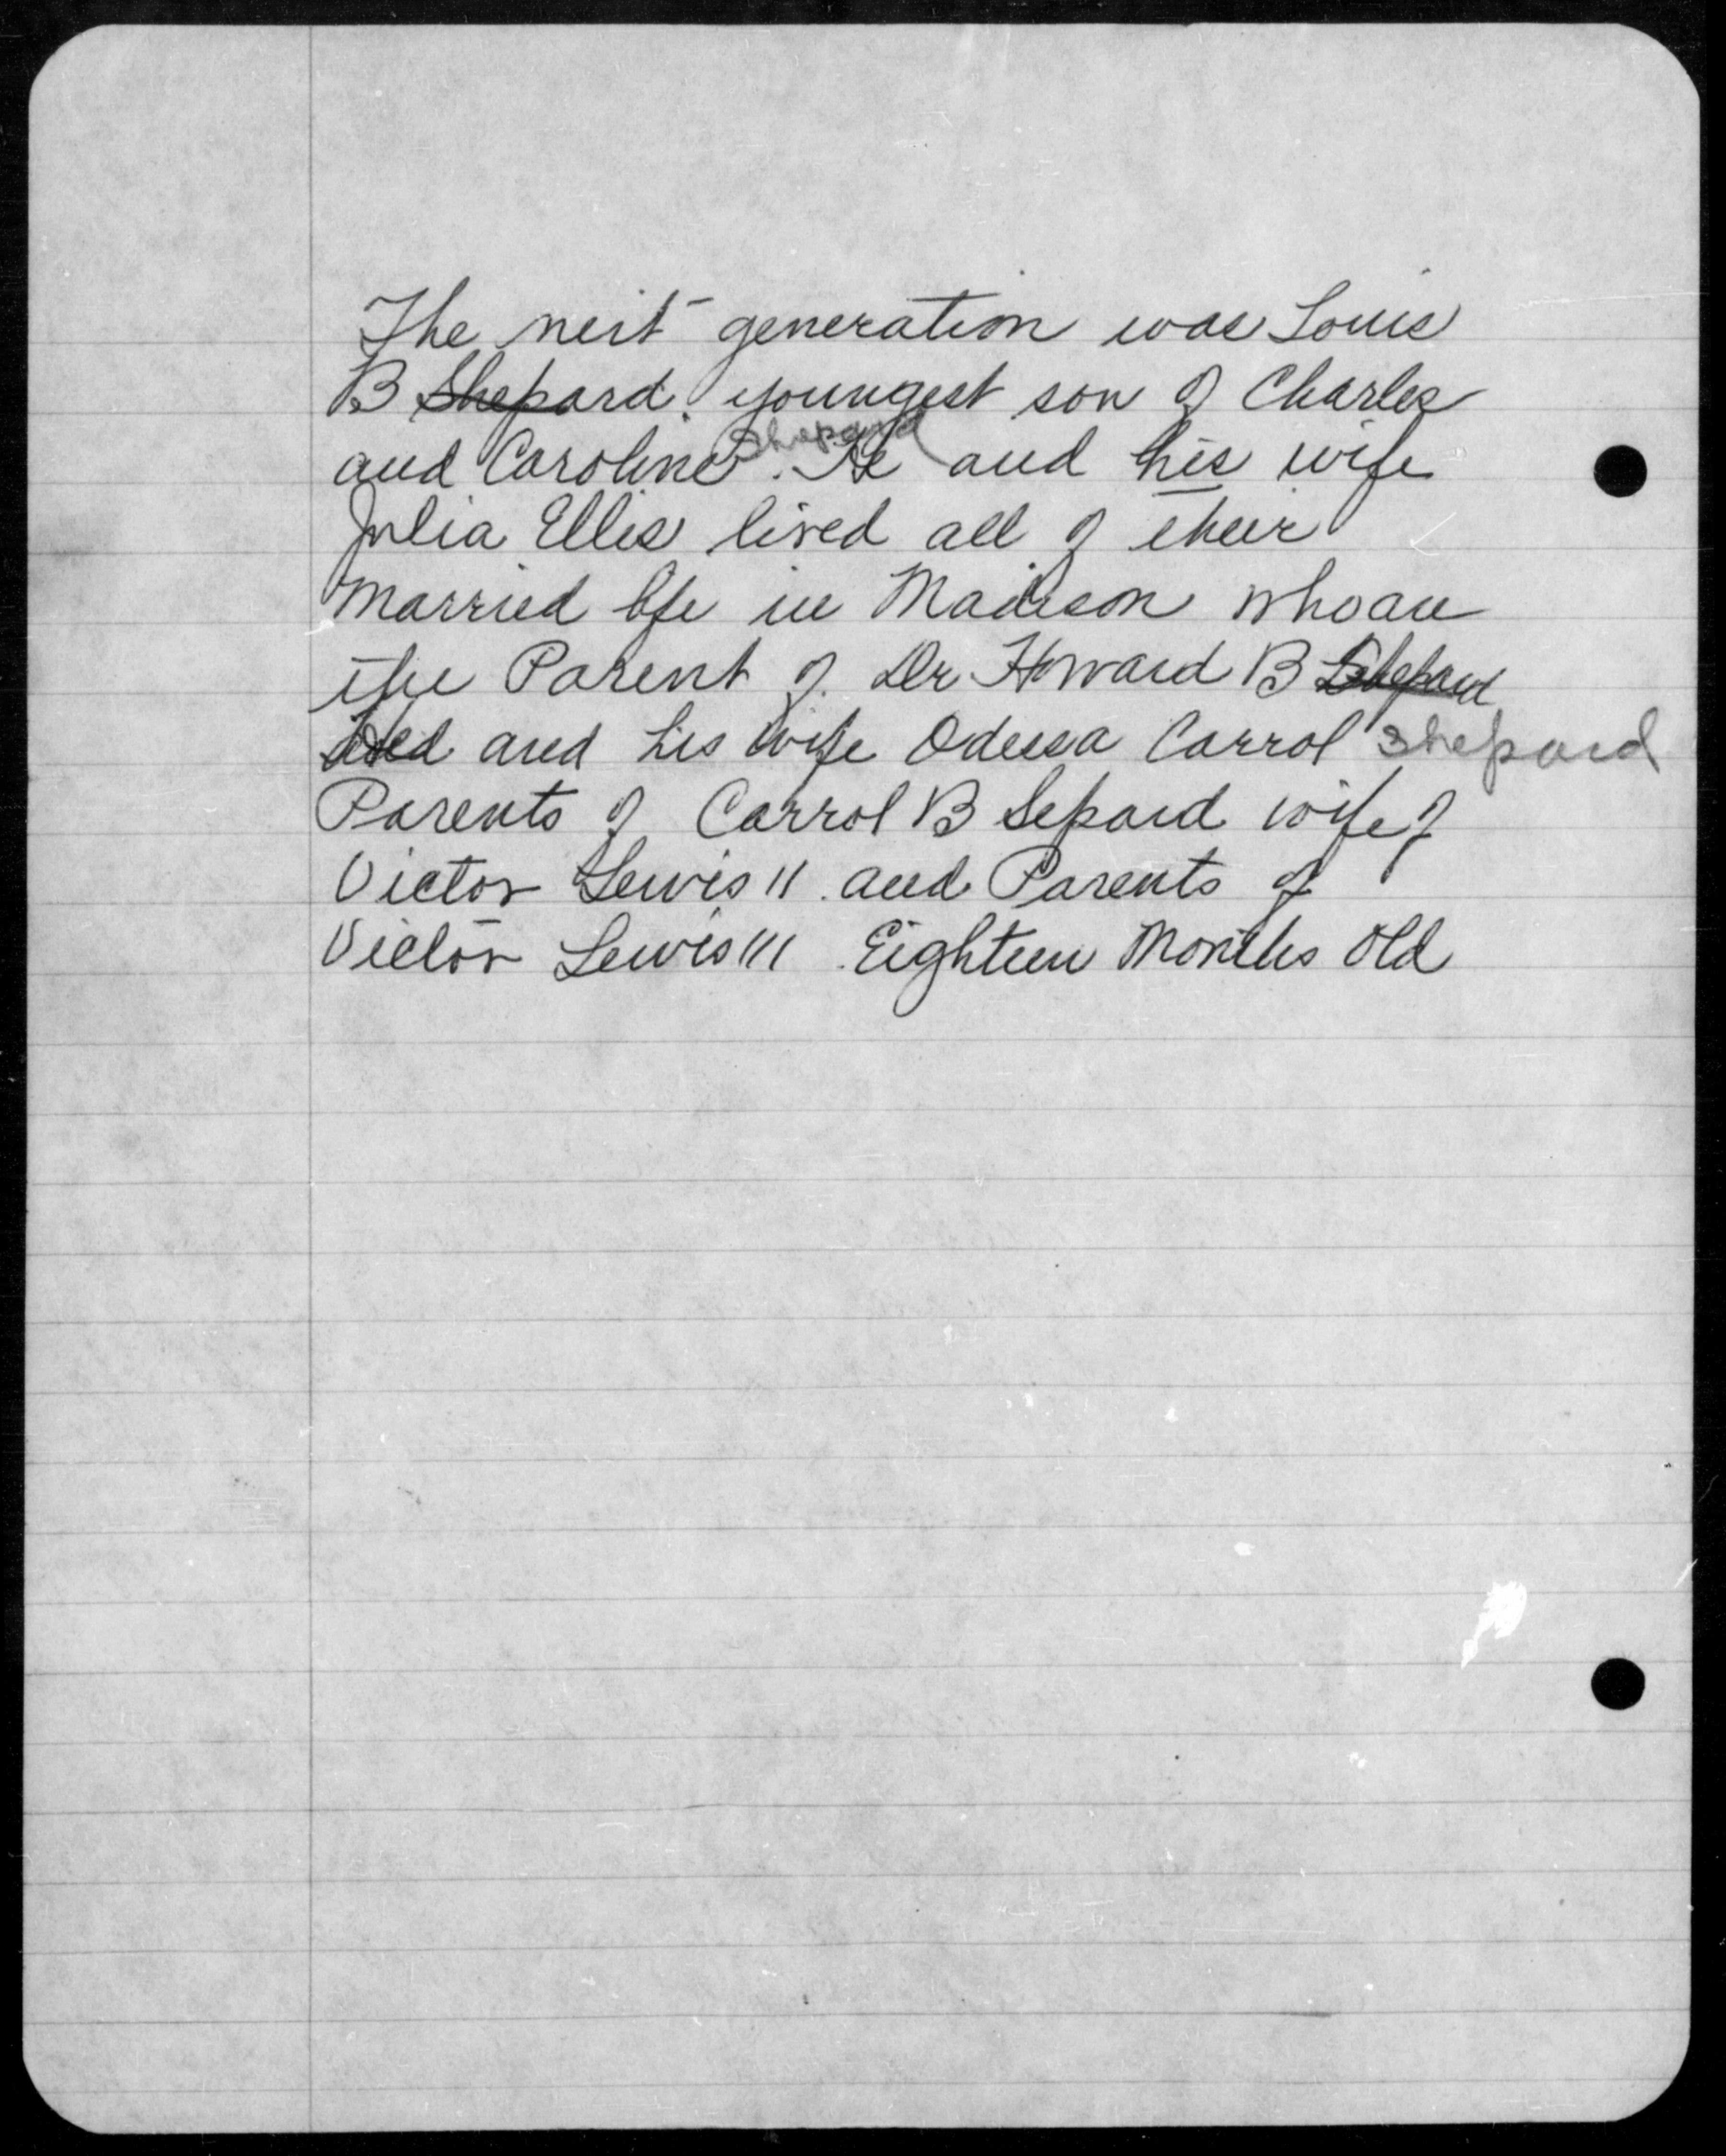 The next generation was Louis
B Shepard. youngest son of Charles
and Caroline Shepard. He and his wife
Julia Ellis lived all of their
married life in Madison who are
the Parent of Dr Howard B Shepard
and his wife Odessa Carrol Shepard
Parents of Carrol B Separd wife of
Victor Lewis II. and Parents of
Victor Lewis III Eighteen Months old